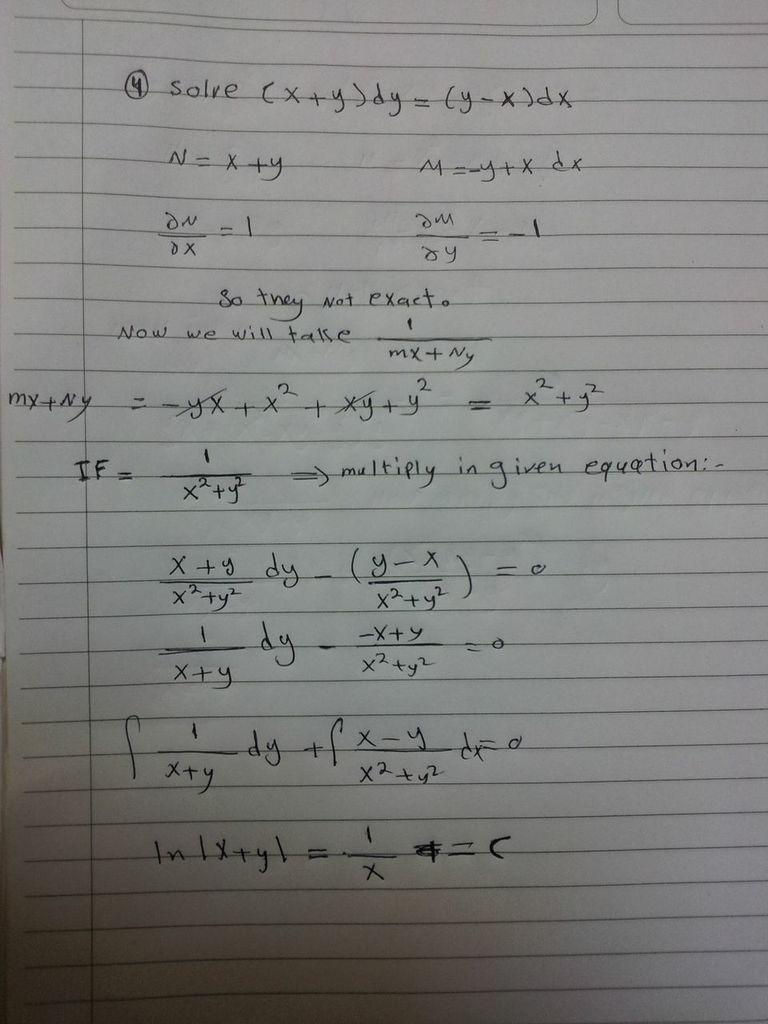 ④ solve (x+y)dy = (y-x)dx
N = x+y M = -y+x dx
∂N/∂x = 1 ∂M/∂y = -1
So they not exact.
Now we will take 1/(mx+Ny)
mx+Ny = -yx + x² + xy + y² = x²+y²
IF = 1/(x²+y²) ⇒ multiply in given equation:-
(x+y)/(x²+y²) dy - ((y-x)/(x²+y²)) = 0
1/(x+y) dy - (-x+y)/(x²+y²) = 0
∫ 1/(x+y) dy + ∫ (x-y)/(x²+y²) dx = 0
ln|x+y| = 1/x = C